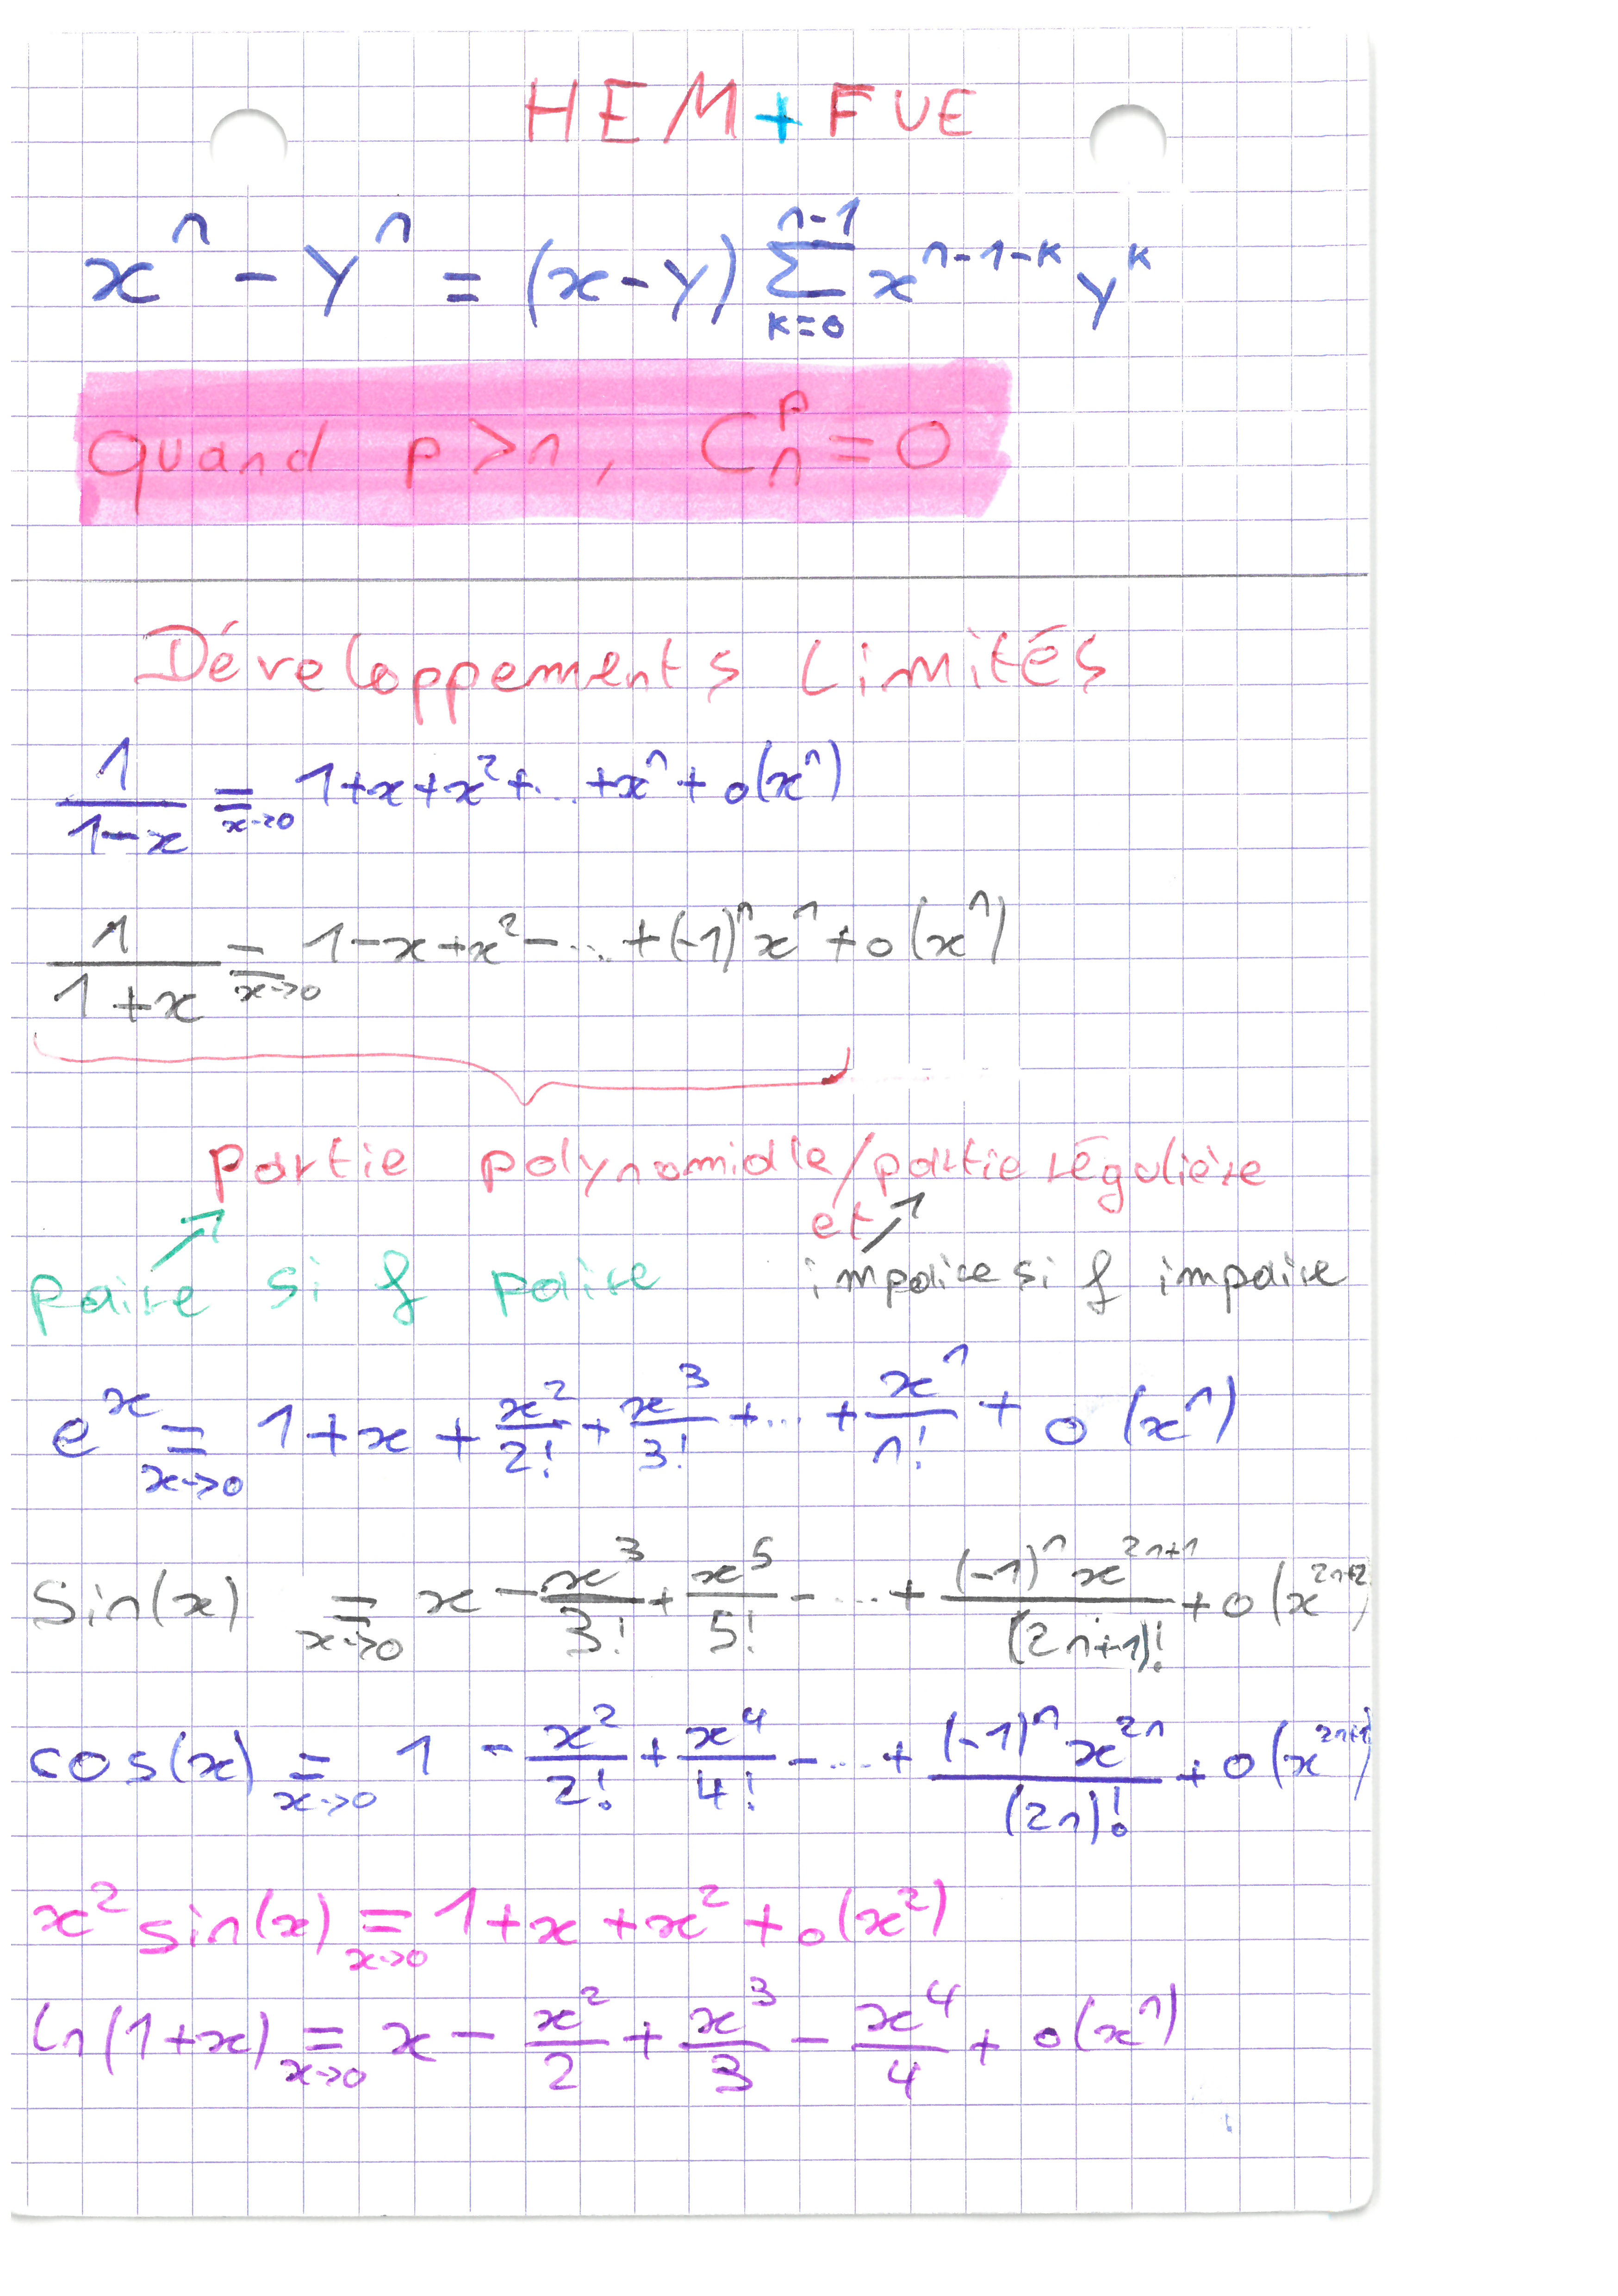 HEM + FVE
xⁿ - yⁿ = (x-y) ∑_{k=0}^{n-1} x^{n-1-k} y^k
Quand p > n, C_n^p = 0
Développements limités
1/(1-x) =_{x→0} 1+x+x²+...+xⁿ+o(xⁿ)
1/(1+x) =_{x→0} 1-x+x²-...+(-1)ⁿxⁿ+o(xⁿ)
partie polynomiale/partie régulière
et
paire si f paire impaire si f impaire
e^x =_{x→0} 1+x+x²/2!+x³/3!+...+xⁿ/n!+o(xⁿ)
Sin(x) =_{x→0} x-x³/3!+x⁵/5!-...+(-1)ⁿx^{2n+1}/(2n+1)!+o(x^{2n+2})
cos(x) =_{x→0} 1-x²/2!+x⁴/4!-...+(-1)ⁿx^{2n}/(2n)!+o(x^{2n+1})
x² sin(x) =_{x→0} 1+x+x²+o(x²)
ln(1+x) =_{x→0} x-x²/2+x³/3-x⁴/4+o(xⁿ)